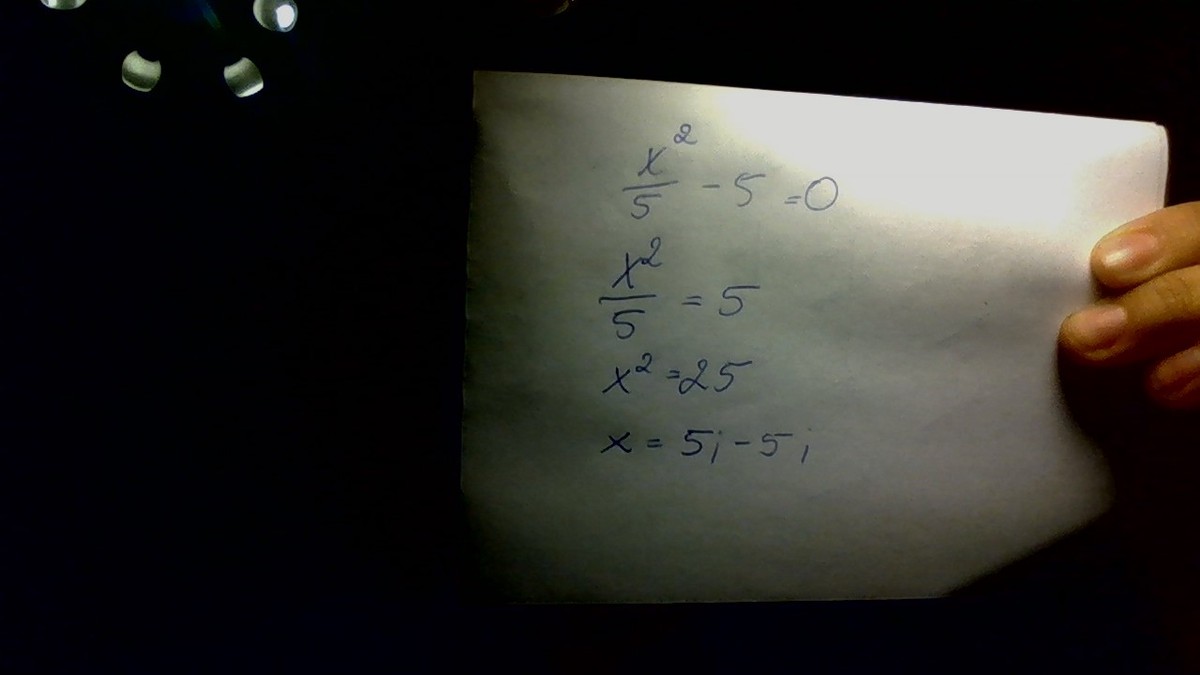 x²/5 - 5 = 0
x²/5 = 5
x² = 25
x = 5; -5;